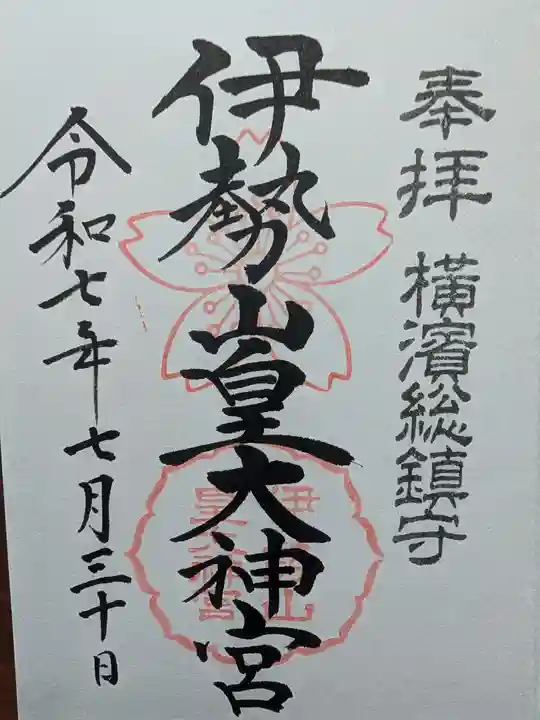 奉拝 横濱総鎮守
伊勢山皇大神宮
令和七年七月三十日
伊勢山
皇大神宮